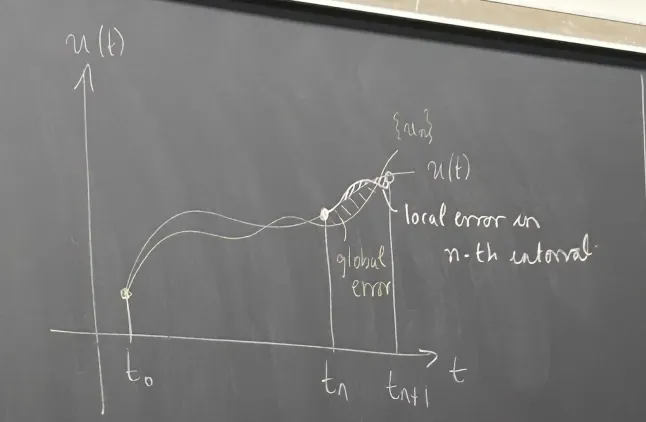 u(t)
{uₙ}
u(t)
local error in
n-th interval.
global
error
t₀
tₙ
tₙ₊₁
t